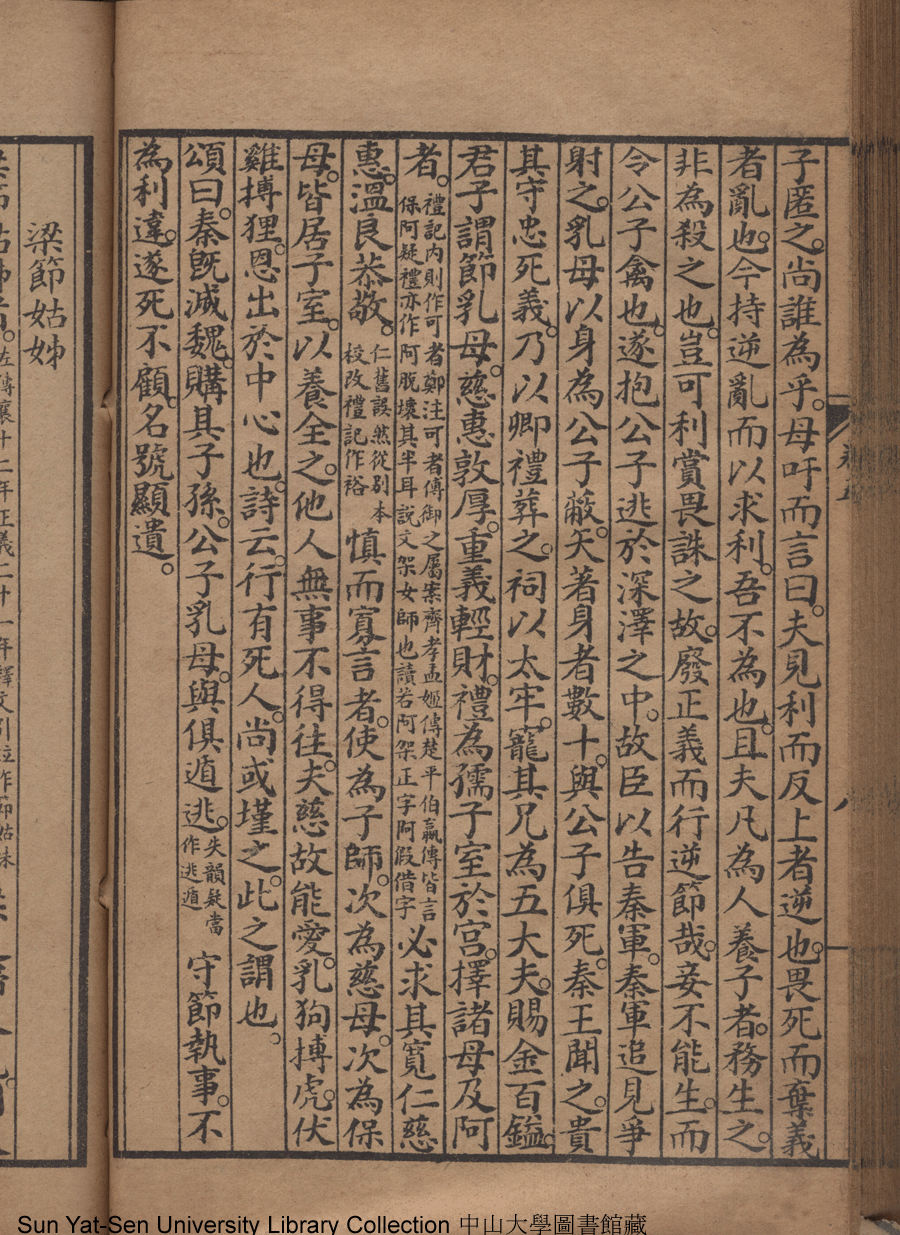 子匿之。尚誰為乎。母吁而言曰。夫見利而反上者逆也。畏死而棄義
者亂也。今持逆亂而以求利。吾不為也。且夫凡為人養子者。務生之。
非為殺之也。豈可利賞畏誅之故。廢正義而行逆節哉。妾不能生。而
令公子禽也。遂抱公子逃於深澤之中。故臣以告秦軍。秦軍追見爭
射之。乳母以身為公子蔽。矢著身者數十。與公子俱死。秦王聞之。貴
其守忠死義。乃以卿禮葬之。祠以太牢。寵其兄為五大夫。賜金百鎰。
君子謂節乳母。慈惠敦厚。重義輕財。禮為孺子室於宮。擇諸母及阿
者。禮記內則作可者鄭注可者傅御之屬案齊孝孟姬傳楚平伯嬴傳皆言保阿疑禮亦作阿脫壞其半耳說文娿女師也讀若阿娿正字阿假借字必求其寬仁慈
惠。溫良恭敬。仁舊誤然從別本校改禮記作裕慎而寡言者。使為子師。次為慈母。次為保
母。皆居子室。以養全之。他人無事不得往。夫慈故能愛。乳狗搏虎。伏
雞搏狸。恩出於中心也。詩云。行有死人。尚或墐之。此之謂也。
頌曰。秦既滅魏。購其子孫。公子乳母。與俱遁逃。失韻疑當作逃遁守節執事。不
為利違。遂死不顧。名號顯遺。
梁節姑姊
卷五
八
Sun Yat-Sen University Library Collection 中山大學圖書館藏